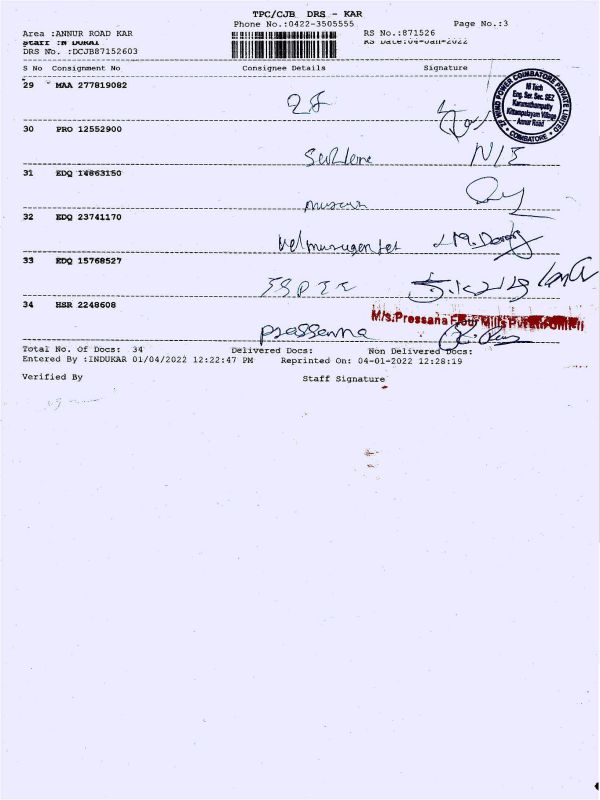 TPC/CJB DRS - KAR
Phone No.:0422-3505555
Page No.:3
Area :ANNUR ROAD KAR
RS No.:871526
Staff :N DURAI
RS Date:04-Jan-2022
DRS No. :DCJB87152603
S No Consignment No Consignee Details Signature
29 MAA 277819082
ZF
ZF WIND POWER COIMBATORE PRIVATE LIMITED
Hi Tech
Eng. Ser. Sec. SEZ
Karumathampatty
Kittampalayam Village
Annur Road
COIMBATORE
30 PRO 12552900
31 EDQ 14863150
32 EDQ 23741170
33 EDQ 15768527
34 HSR 2248608
M/s.Pressana Flour Mills
prassanna
Total No. Of Docs: 34 Delivered Docs: Non Delivered Docs:
Entered By :INDUKAR 01/04/2022 12:22:47 PM Reprinted On: 04-01-2022 12:28:19
Verified By Staff Signature